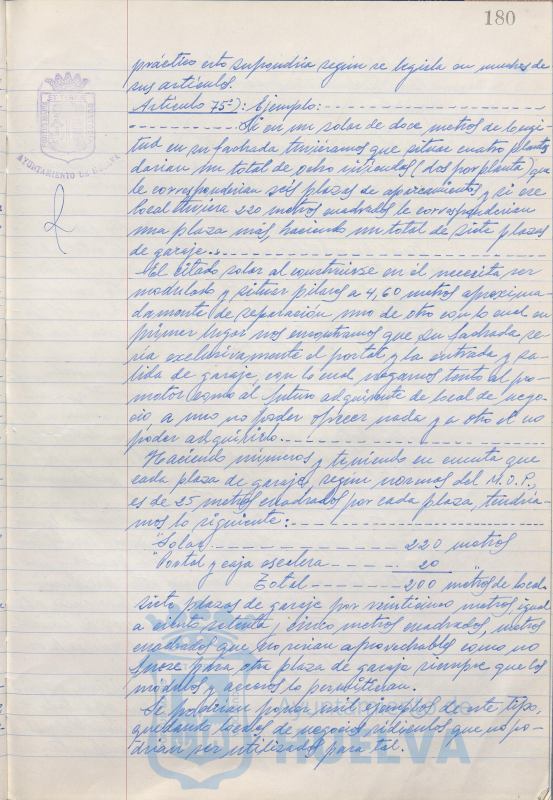 180
práctico esto supondría segun se legisla en muchos de
sus artículos.
Artículo 75º): Ejemplo:
Si en un solar de doce metros de longi
tud en su fachada tuvieramos que situar cuatro plantas
darían un total de ocho viviendas (dos por planta) que
le corresponderían seis plazas de aparcamientos y si ese
local tuviera 220 metros cuadrados le corresponderían
una plaza más, haciendo un total de siete plazas
de garaje.
El citado solar al construirse en él necesita ser
modulado y situar pilares a 4,60 metros aproxima
damente de separación uno de otro con lo cual en
primer lugar nos encontramos que su fachada se-
ría exclusivamente el portal y la entrada y sa-
lida de garaje, con lo cual negamos tanto al pro-
motor como al futuro adquirente de local de nego-
cio a uno no poder ofrecer nada y a otro el no
poder adquirirlo.
Haciendo números y teniendo en cuenta que
cada plaza de garaje, segun normas del M.O.P.,
es de 25 metros cuadrados por cada plaza, tendría-
mos lo siguiente:
"Solar 220 metros
"Portal y caja escalera 20 "
Total 200 metros de local.
siete plazas de garaje por veinticinco metros igual
a ciento setenta y cinco metros cuadrados, metros
cuadrados que no serían aprovechables como no
fuese para otra plaza de garaje siempre que los
módulos y accesos lo permitieran.
Se podrían poner mil ejemplos de este tipo,
quedando locales de negocios ridículos que no po-
drían ser utilizados para tal.
AYUNTAMIENTO DE HUELVA
Ayuntamiento de
HUELVA